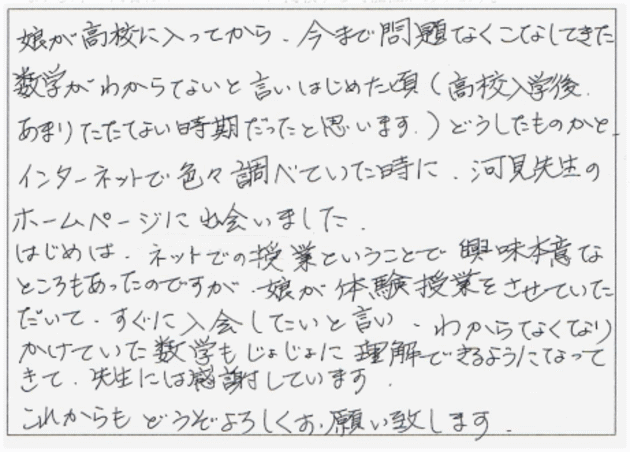 娘が高校に入ってから、今まで問題なくこなしてきた
数学がわからてないと言いはじめた頃(高校入学後、
あまりたたてない時期だったと思います。)どうしたものかと、
インターネットで色々調べていた時に、河見先生の
ホームページに出会いました。
はじめは、ネットでの授業ということで興味本意な
ところもあったのですが、娘が体験授業をさせていた
だいて、すぐに入会したいと言い、わからなくなり
かけていた数学もじょじょに理解できるようになって
きて、先生には感謝しています。
これからもどうぞよろしくお願い致します。